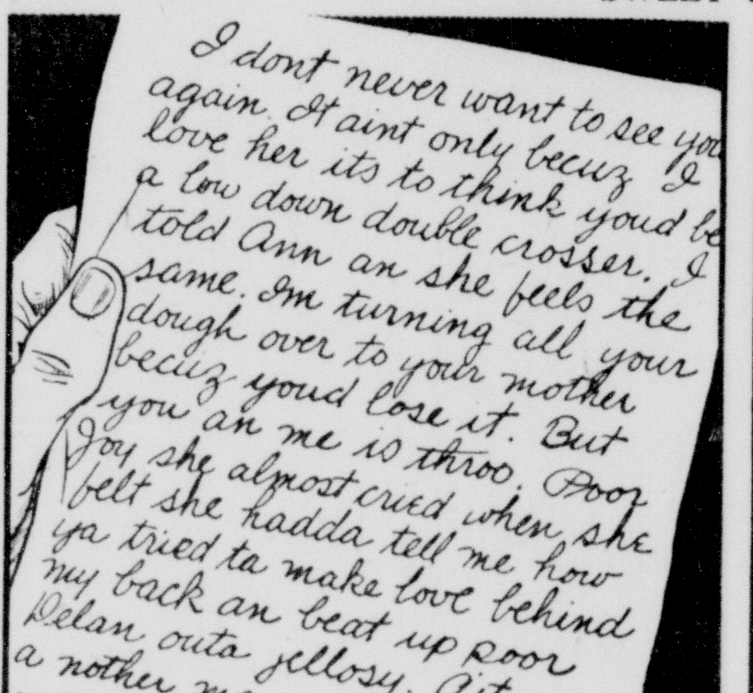 I dont never want to see you
again. It aint only becuz I
love her its to think youd be
a low down double crosser. I
told Ann an she feels the
same. Im turning all your
dough over to your mother
becuz youd lose it. But
you an me is throo. Poor
Joy she almost cried when she
belt she hadda tell me how
ya tried ta make love behind
my back an beat up poor
Delan outa jellosy. Git
a nother